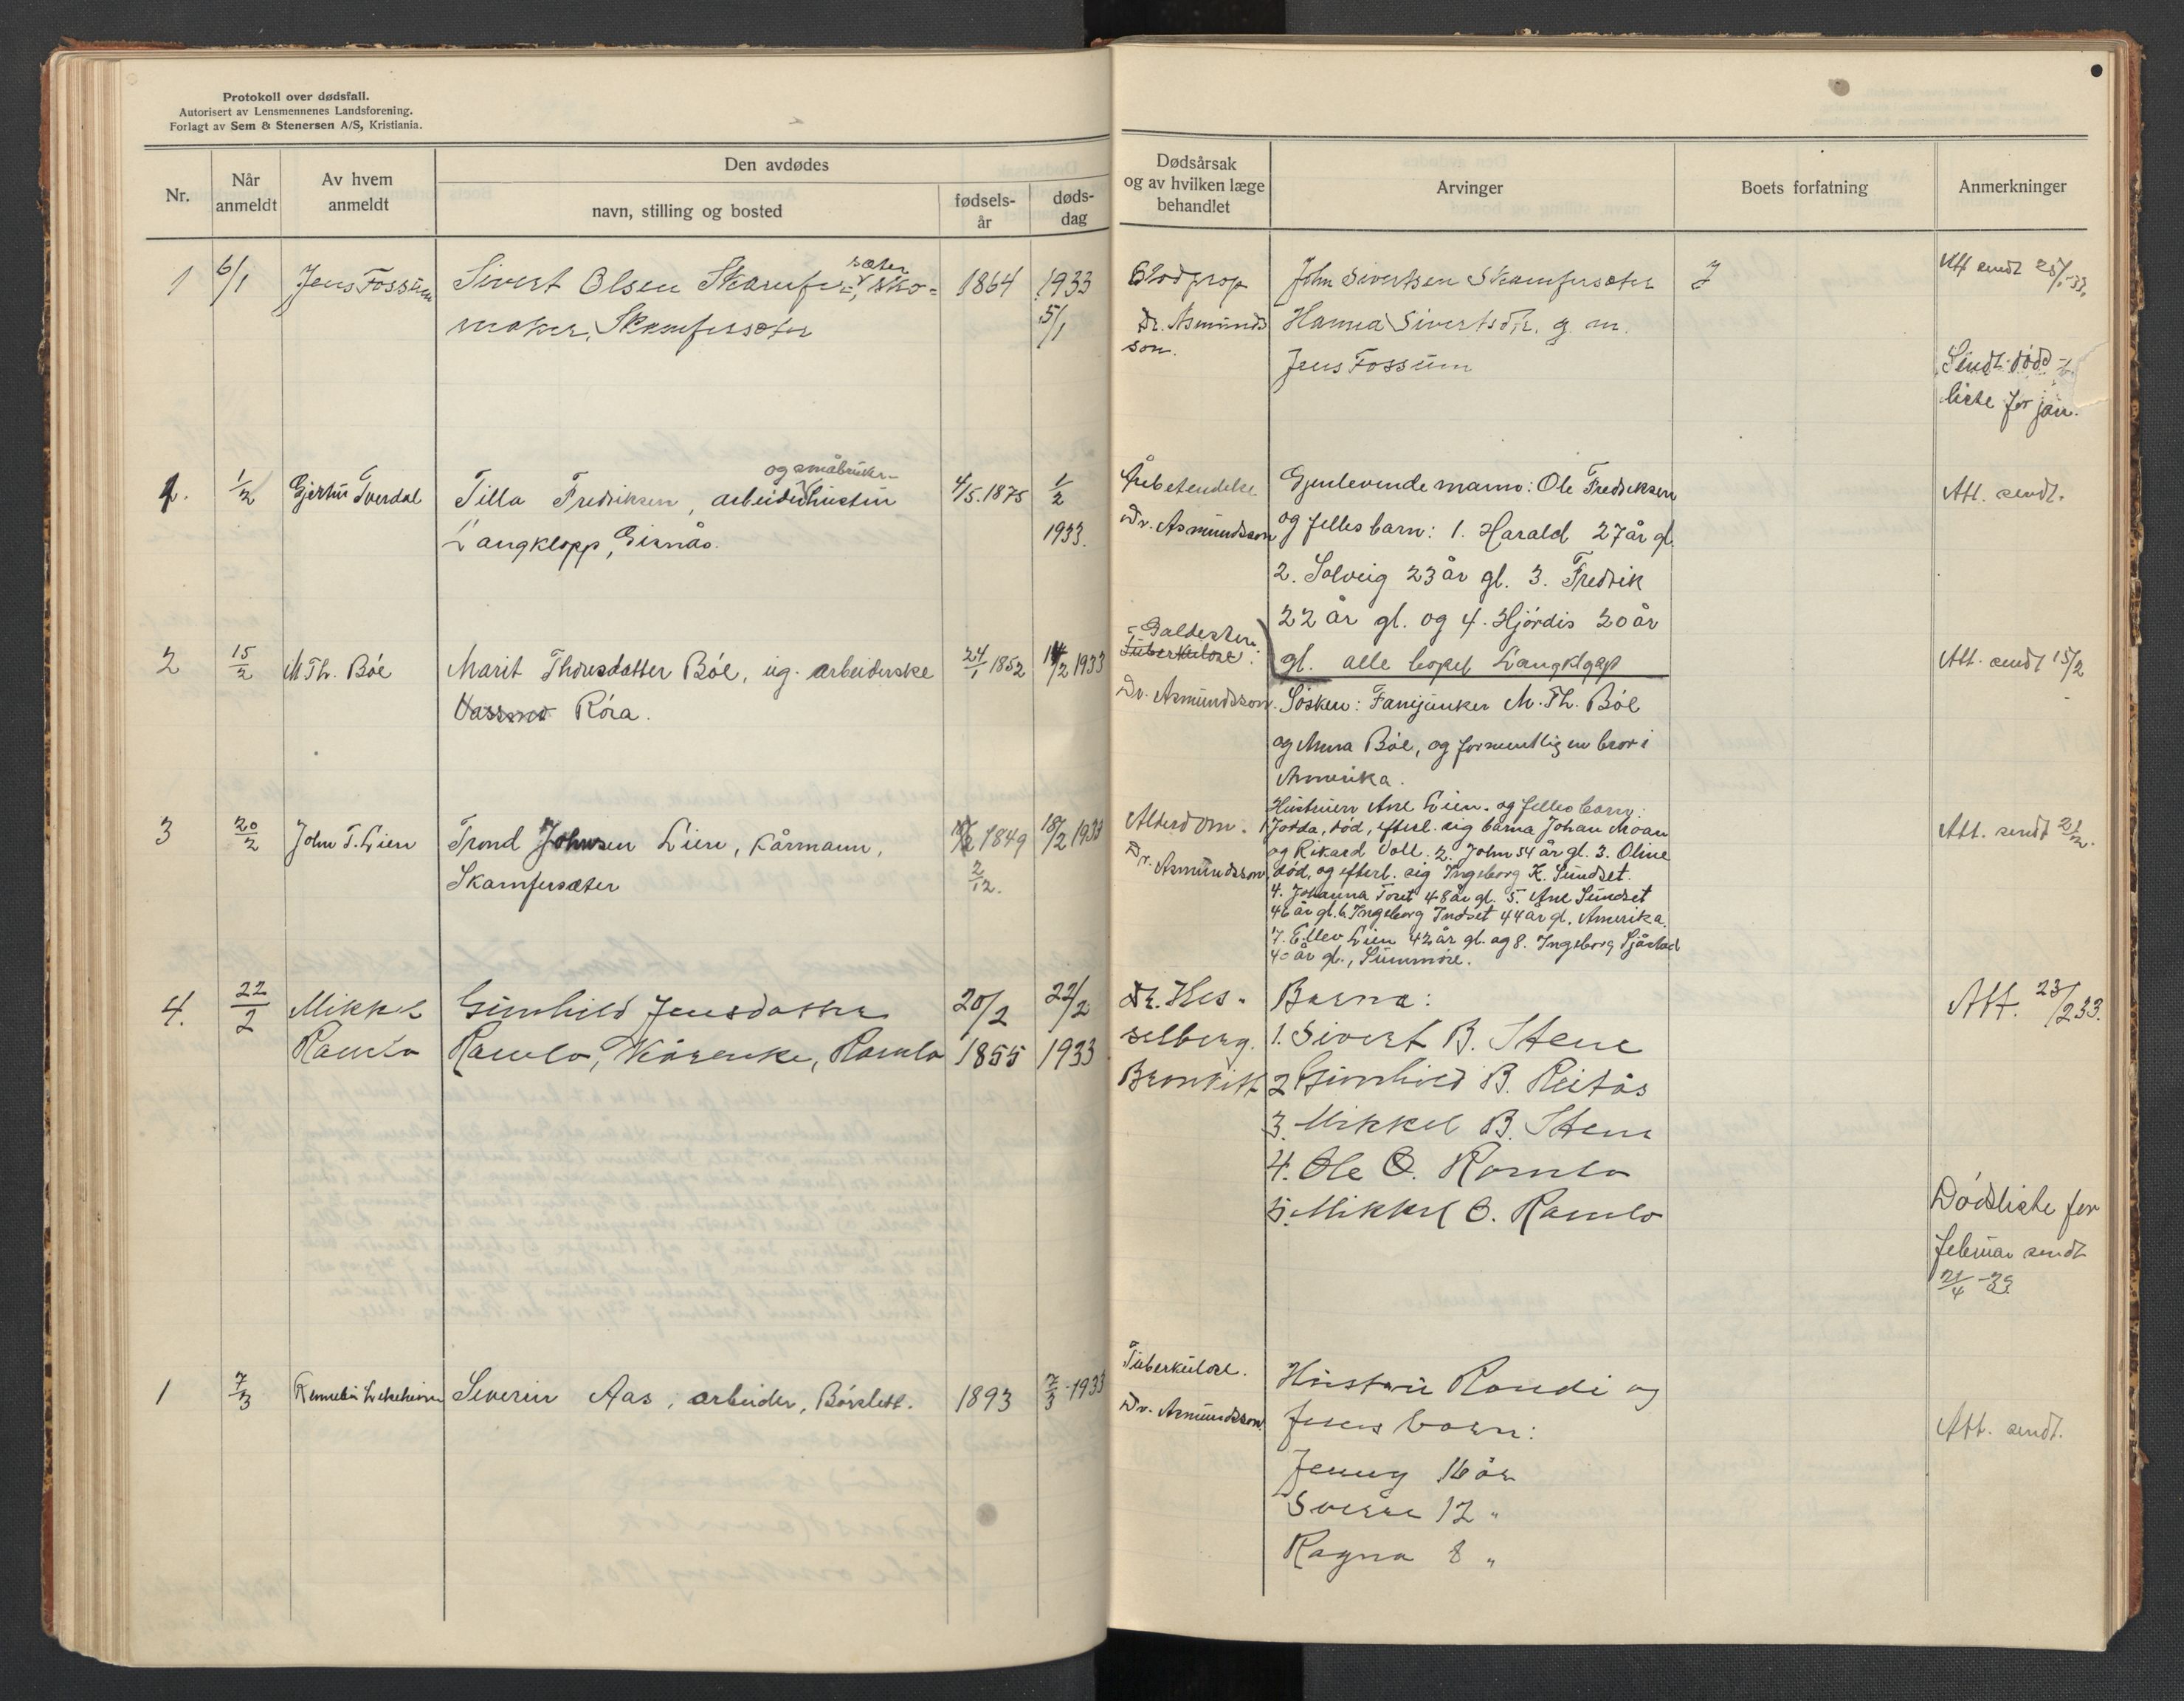 Protokoll over dødsfall.
Autorisert av Lensmennenes Landsforening.
Forlagt av Sem & Stenersen A/S, Kristiania.
Nr.
Når anmeldt
Av hvem anmeldt
Den avdødes
navn, stilling og bosted
fødselsår
dødsdag
Dødsårsak
og av hvilken læge
behandlet
Arvinger
Boets forfatning
Anmerkninger
1 6/1 Jens Fossum Sivert Olsen Skamfer=sæter, sko= 1864 1933
maker, Skamfersæter 5/1
Blodprop
Dr. Asmunds
son.
John Sivertsen Skamfersæter
Hanna Sivertsdtr. g. m.
Jens Fossum
Att sendt 25/1-33.
Sendt død-
liste for jan.
1. 1/2 Gjertru Tverdal Tilla Fredriksen, arbeider og småbruker-hustru 4/5.1875 1/2
Langklopp, Gisnås. 1933.
Årebetendelse
Dr. Asmundsson
Gjenlevende mann: Ole Fredriksen
og felles barn: 1. Harald 27 år gl.
2. Solveig 23 år gl. 3. Fredrik
22 år gl. og 4. Hjördis 20 år
gl. alle bopel Langklopp
Att. sendt.
2 15/2 M Th. Böe Marit Thorsdatter Böe, ug. arbeiderske 24/1 1852 14/2 1933
Röra.
Tuberkulose.
Dr. Asmundsson.
Søsken: Fanejunker M. Th. Böe
og Anna Böe, og formentlig en bror i
Amerika.
Att. sendt 15/2
3 20/2 John T. Lien Trond Johnsen Lien, kårmann, 1849 18/2 1933
Skamfersæter 2/12.
Alderdom.
Dr. Asmundsson
Hustruen Ane Lien. og felles barn:
død, efterl. sig barna Johan Moan
og Rikard Voll. 2. John 54 år gl. 3. Oline
død, og efterl. sig Ingeborg K. Sundset.
4. Johanna Toset 48 år gl. 5. Ane Sundset
46 år gl. 6. Ingeborg Indset 44 år gl. Amerika.
7. Ellev Lien 42 år gl. og 8. Ingeborg Sjåstad
40 år gl., Sunmöre.
Att. sendt 21/2.
4. 22/2 Mikkel Gunhild Jensdatter 20/2 22/2
Ramlo Ramlo, Kårenke, Ramlo 1855 1933
Dr. Hes-
selberg.
Bronkitt
Barna:
1. Sivert B. Stene
2 Gunhild B. Reitås
3. Mikkel B. Stene
4. Ole O. Ramlo
5. Mikkel O. Ramlo
Att. 23/2 33.
Dödsliste for
februar sendt
21/4 -33
1 7/3 Severin Aas, arbeider, Börslett. 1893 7/3 1933
Tuberkulose.
Dr. Asmundsson.
Hustru Randi og
barn:
Jenny 16 år
Sverre 12 "
Ragna 8 "
Att. sendt.